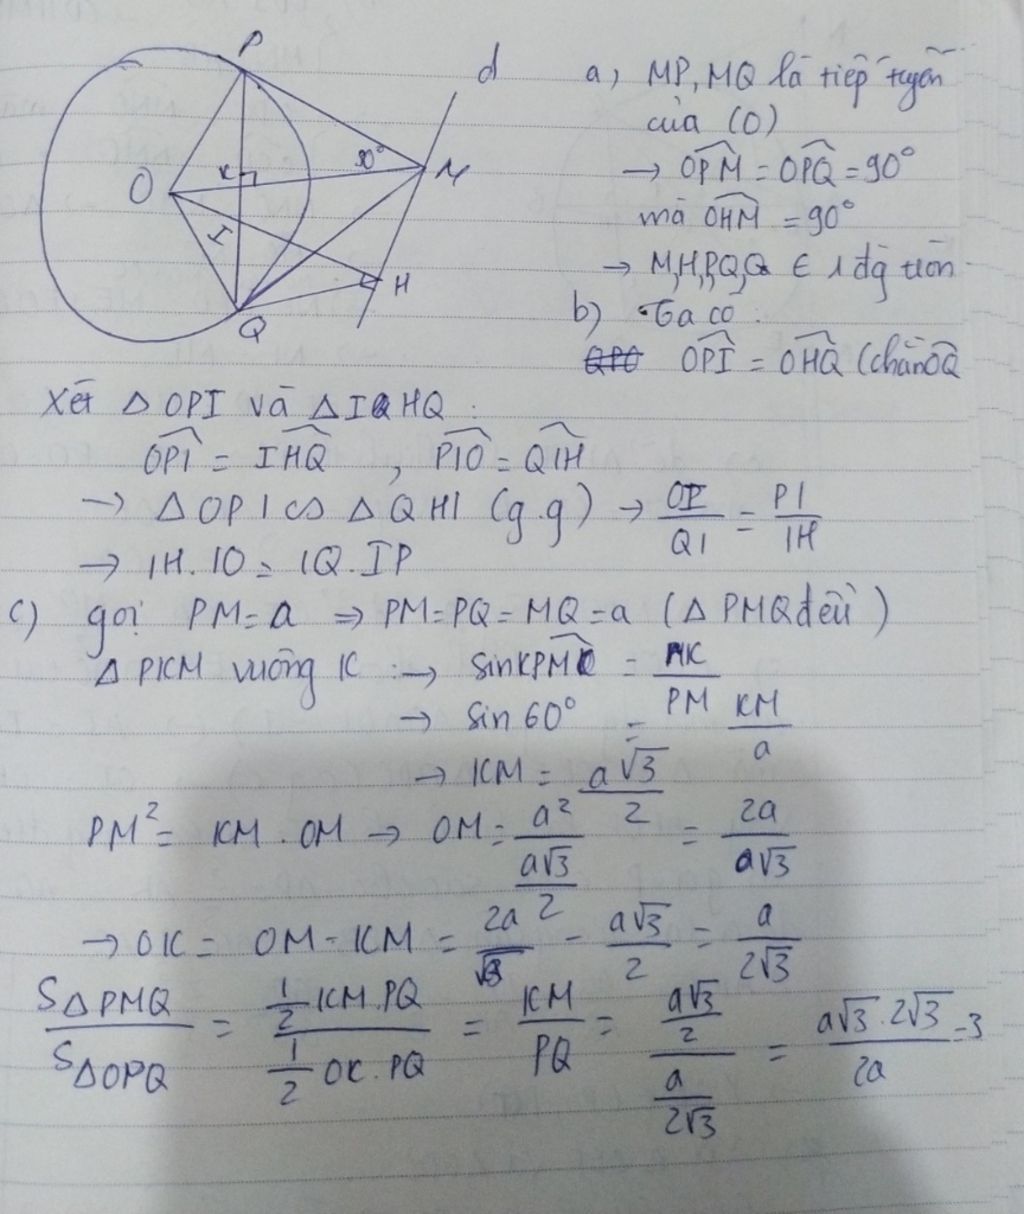 P
d
a, MP, MQ là tiếp tuyến
của (O)
→ \widehat{OPM} = \widehat{OPQ} = 90°
mà \widehat{OHM} = 90°
→ M,H,P,Q,O ∈ 1 đg tròn
b) Ta có :
\widehat{OPI} = \widehat{OHQ} (chắn OQ
O
K
30°
M
I
H
Q
Xét △ OPI và △ I HQ :
\widehat{OPI} = \widehat{IHQ} , \widehat{PIO} = \widehat{QIH}
→ △ OPI ∽ △ QHI (g.g) → \frac{OI}{QI} = \frac{PI}{IH}
→ IH. IO = IQ. IP
c) gọi PM = a ⇒ PM = PQ = MQ = a (△ PMQ đều)
△ PKM vuông K : → sin \widehat{KPM} = \frac{MK}{PM}
→ sin 60° = \frac{KM}{a}
→ KM = \frac{a√3}{2}
PM² = KM . OM → OM = \frac{a²}{\frac{a√3}{2}} = \frac{2a}{a√3}
→ OK = OM - KM = \frac{2a}{√3} - \frac{a√3}{2} = \frac{a}{2√3}
\frac{S△PMQ}{S△OPQ} = \frac{\frac{1}{2} KM.PQ}{\frac{1}{2} OK.PQ} = \frac{KM}{PQ} = \frac{\frac{a√3}{2}}{\frac{a}{2√3}} = \frac{a√3 . 2√3}{2a} = 3